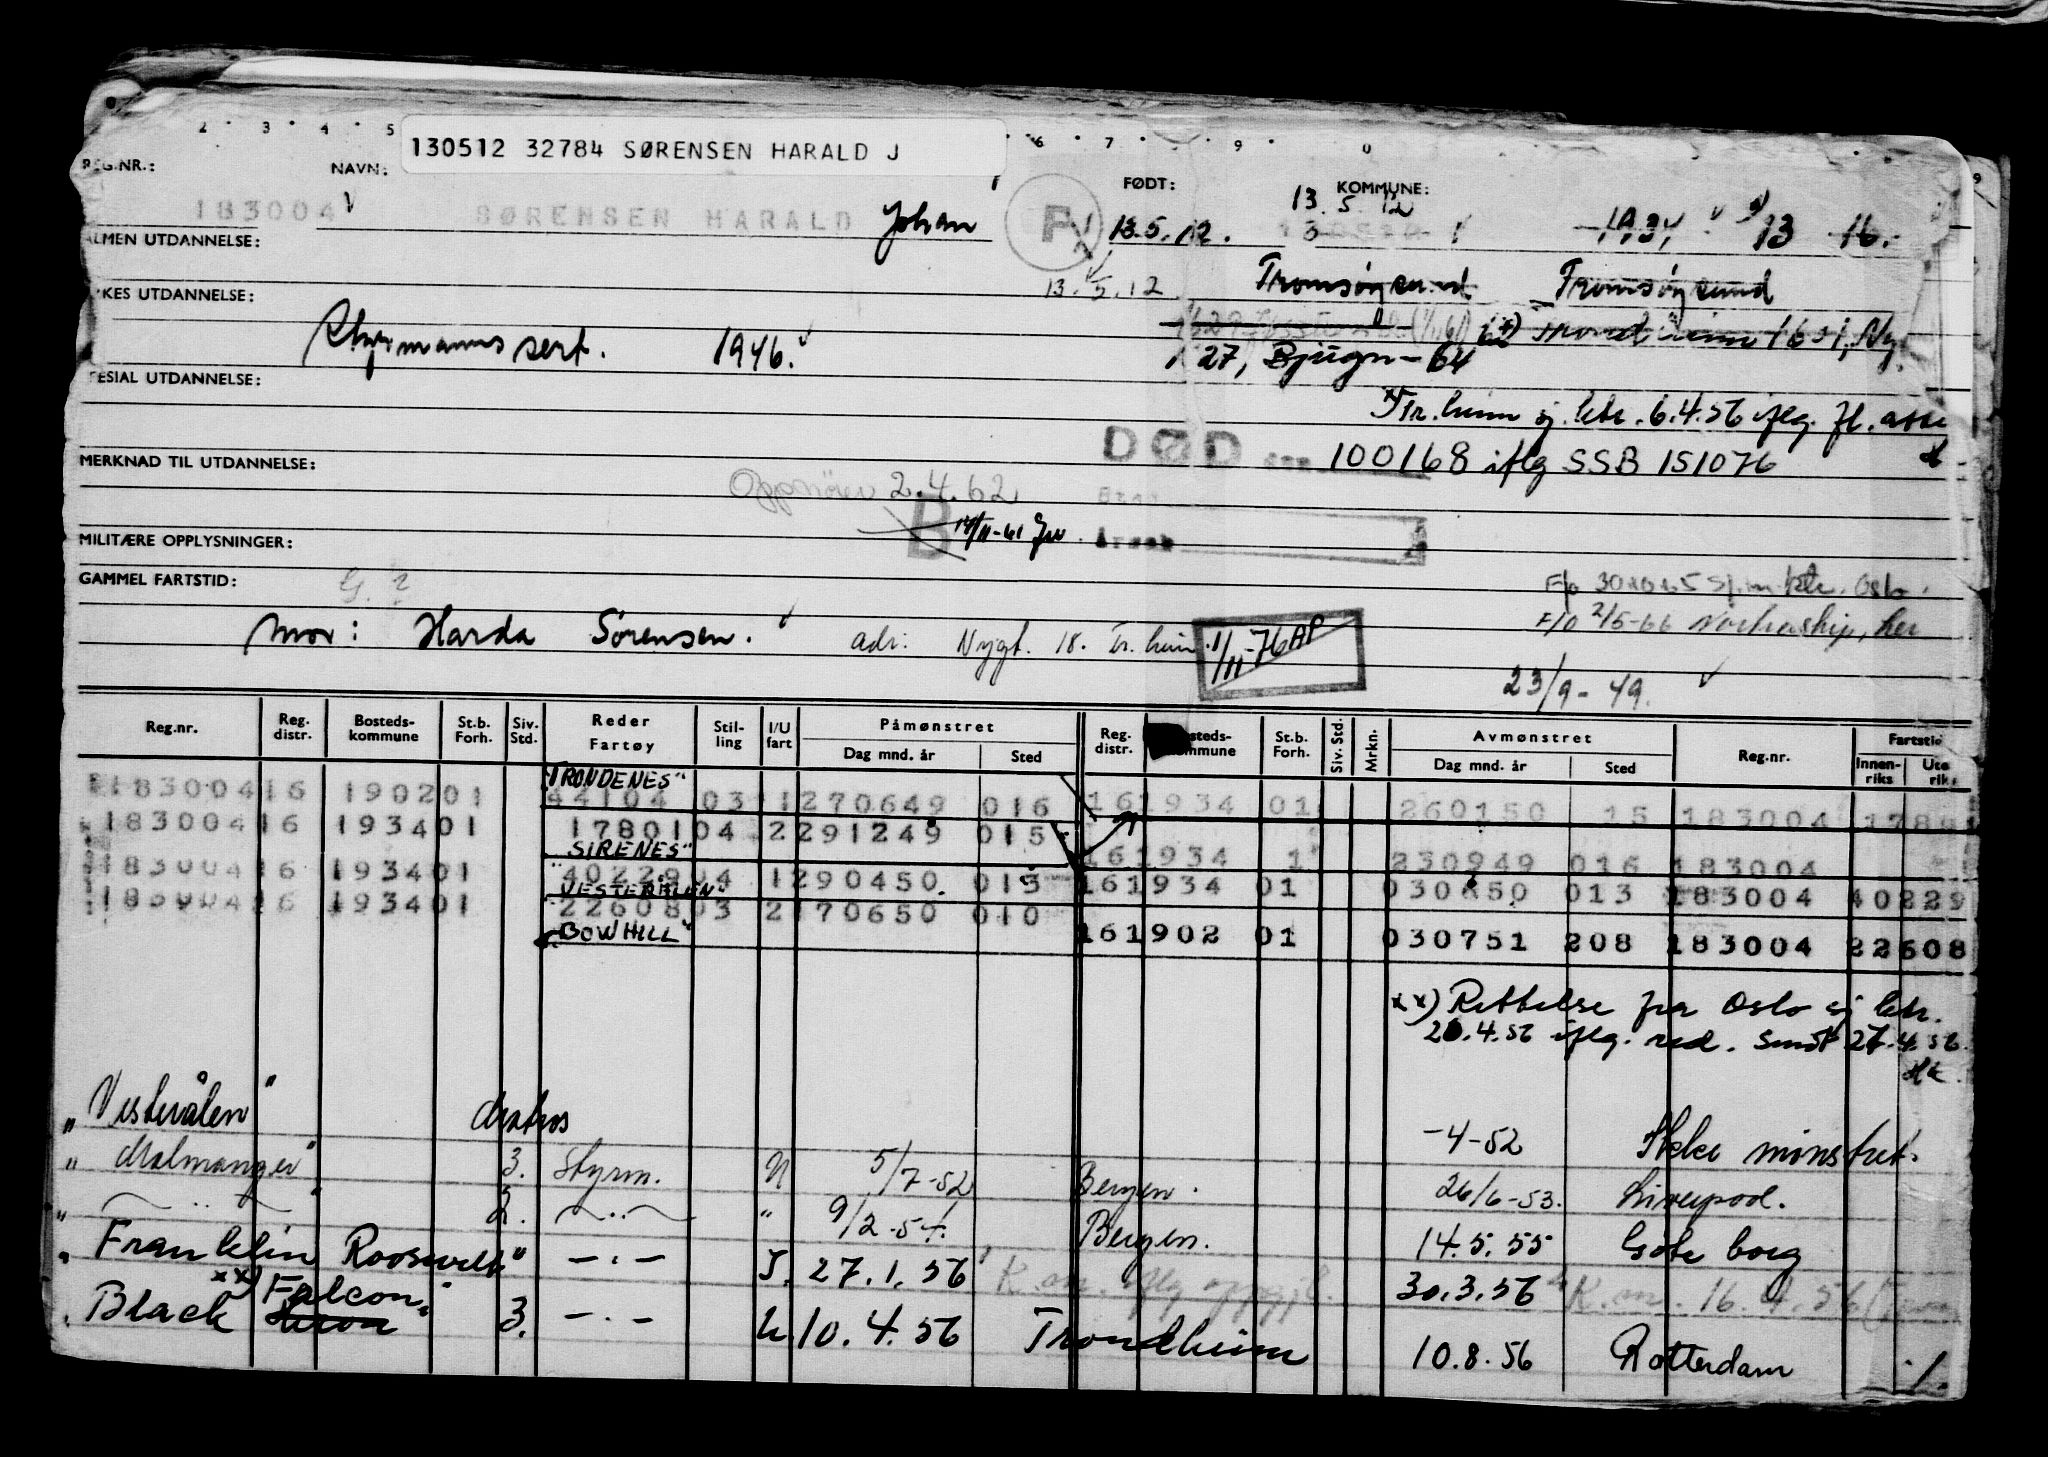 2 · 3 · 4 · 5 6 · 7 · 9 · 0
130512 32784 SØRENSEN HARALD J
REG.NR.: NAVN: FØDT: KOMMUNE:
183004 SØRENSEN HARALD Johan P 13.5.12. 13.5.12 1934 13 16.
ALMEN UTDANNELSE:
13.5.12 Tromsøysund Tromsøysund
YRKES UTDANNELSE:
Styrmanns sert. 1946.
1627, Bjugn - 64
SPESIAL UTDANNELSE:
x) Tr.heim sj. ktr. 6.4.56 iflg. fl. atte
DØD 100168 iflg SSB 151076
MERKNAD TIL UTDANNELSE:
Oppnöver 2.4.62
B 14/11-61
Årsak
MILITÆRE OPPLYSNINGER:
GAMMEL FARTSTID: G. ?
F/o 301015 sj.m.ktr. Oslo.
F/o 2/5-66 Nortraship, her
mor: Harda Sørensen. adr: Nygt. 18. Tr.heim 1/11-76 AP
23/9-49.
Reg.nr. Reg. distr. Bosteds-kommune St.b. Forh. Siv. Std. Reder Fartøy Stil-ling I/U fart Påmønstret Dag mnd. år Sted Reg. distr. Bosteds-kommune St.b. Forh. Siv. Std. Mrkn. Avmønstret Dag mnd. år Sted Reg.nr. Fartstid Innen-riks Uten riks
"TRONDENES"
183004 16 1902 01 44104 03 1 270649 016 16 1934 01 260150 15 183004 1780
183004 16 1934 01 17801 04 2 291249 015
"SIRENES" 16 1934 1 230949 016 183004
183004 16 1934 01 40229 04 1 290450 013 16 1934 01 030650 013 183004 40229
"VESTERÅLEN"
183004 16 1934 01 22608 03 2 170650 010
"BOWHILL" 16 1902 01 030751 208 183004 22608
xx) Rettelse fra Oslo sj ktr.
26.4.56 iflg. red. Smst 27.4.56.
Hk.
"Vesterålen" Matros -4-52 Ikke mønstret.
"Malmanger" 3. Styrm. U 5/7-52 Bergen. 26/6-53. Liverpool.
" — " — " 2. — " — " 9/2-54. Bergen. 14.5.55 Göteborg
"Franklin Roosevelt" — " — I. 27.1.56 K.m. iflg oppgj. 30.3.56 K.m. 16.4.56
xx) Falcon
"Black Heron" 3. — " — U. 10.4.56 Trondheim 10.8.56 Rotterdam ./.